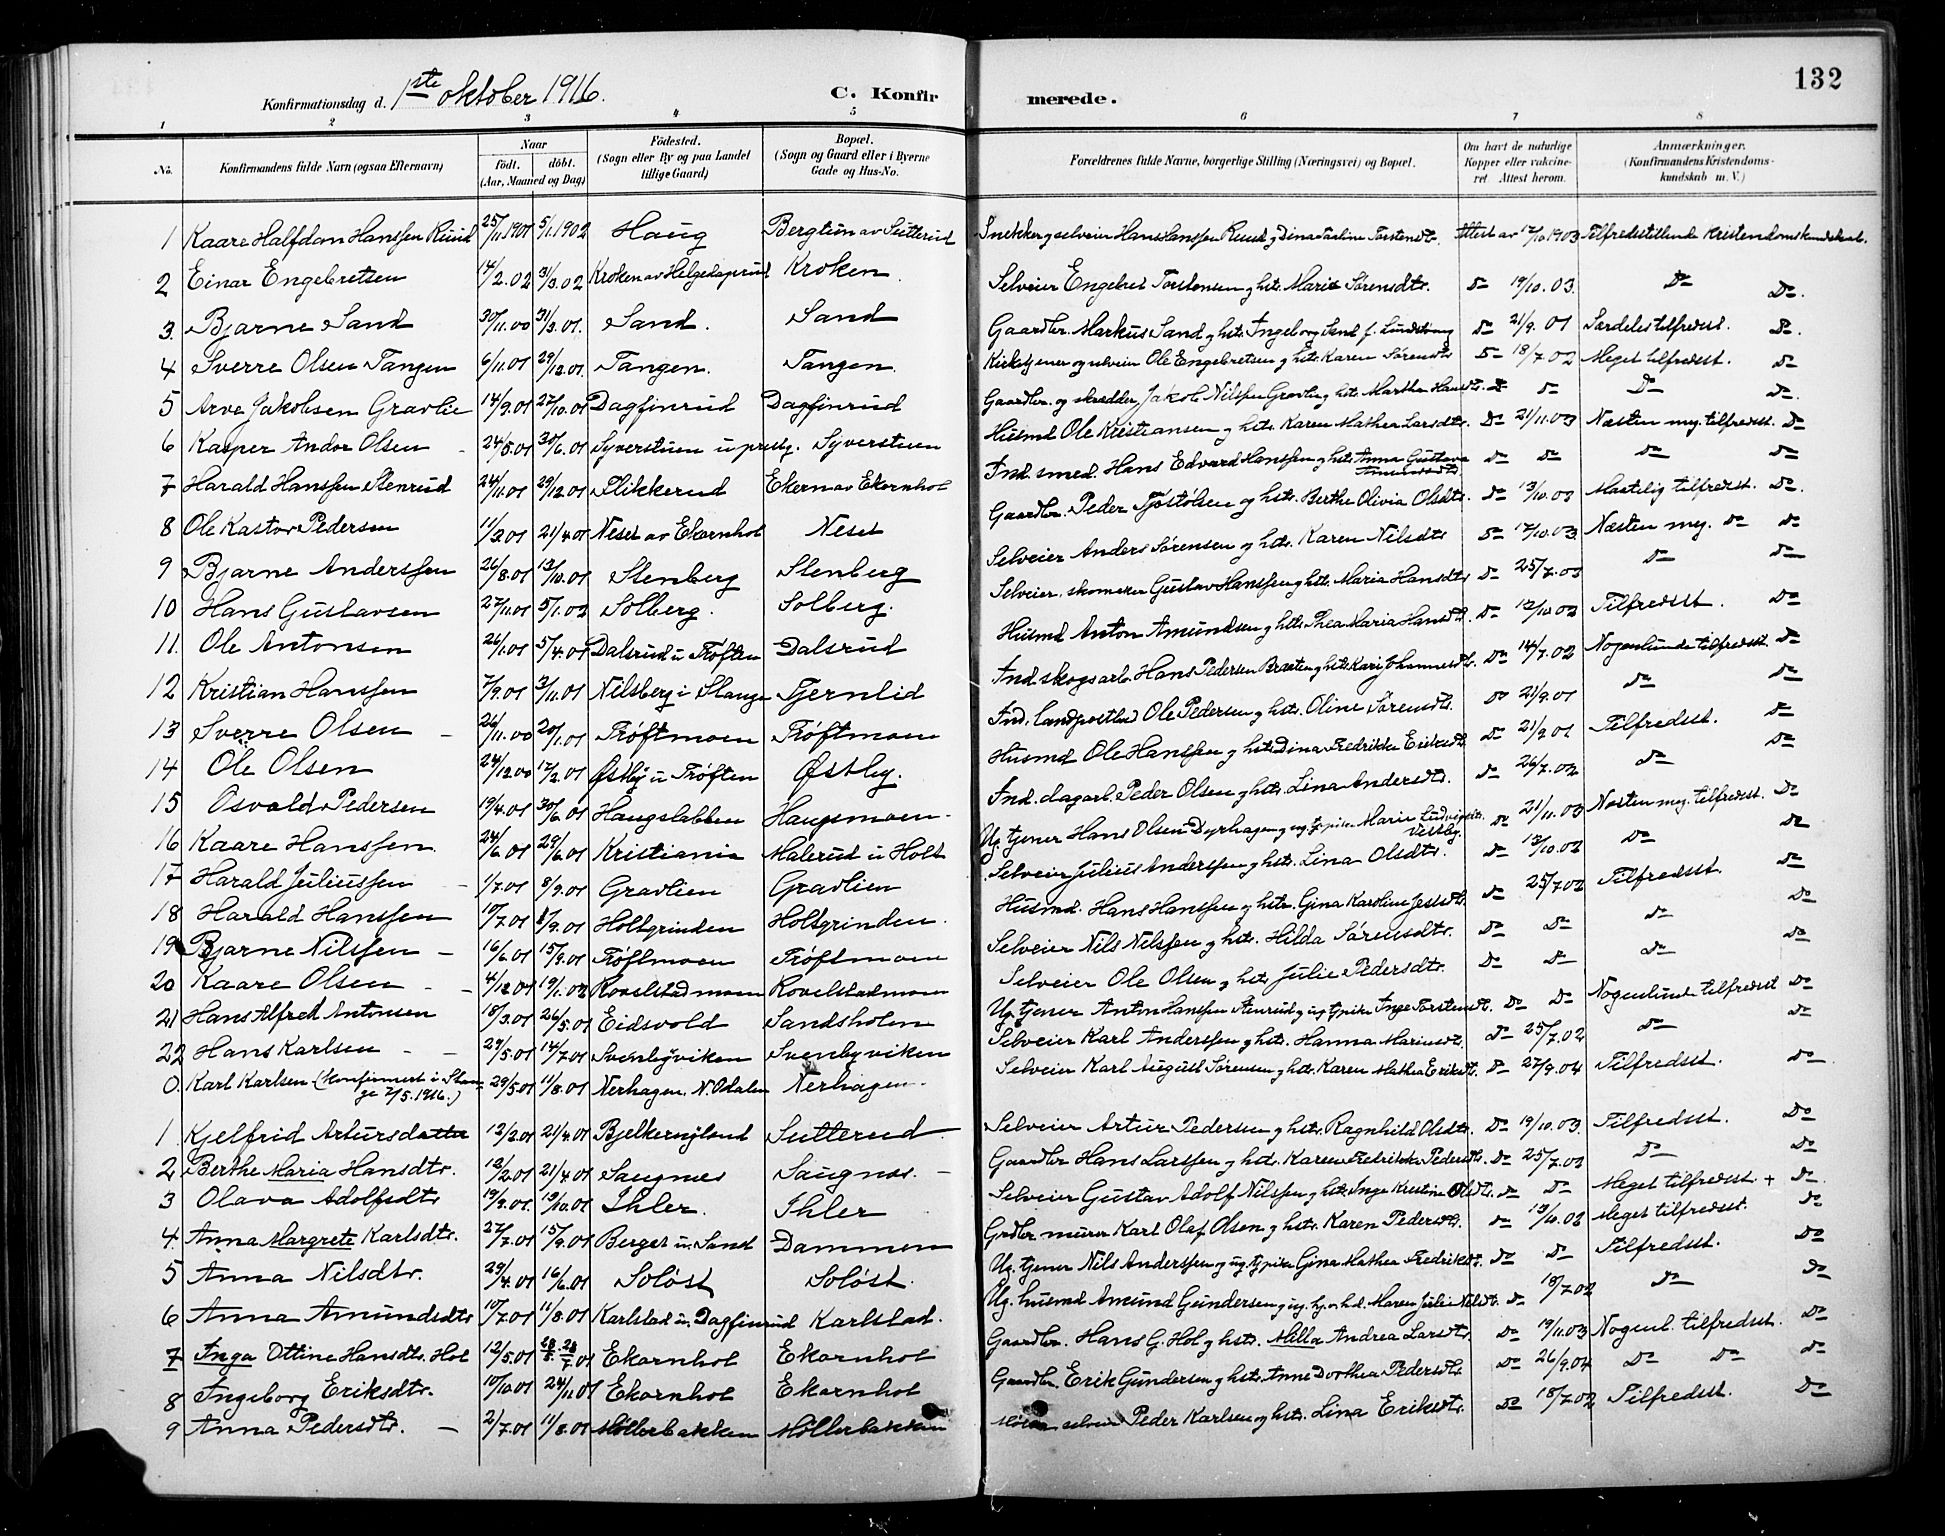 132
Konfirmationsdag d. 1ste oktober 1916. C. Konfirmerede.
1 2 3 4 5 6 7 8
No. Konfirmandens fulde Navn (ogsaa Efternavn) Naar født. døbt. (Aar, Maaned og Dag) Fødested. (Sogn eller By og paa Landet tillige Gaard) Bopæl. (Sogn og Gaard eller i Byerne Gade og Hus-No. Forældrenes fulde Navne, borgerlige Stilling (Næringsvei) og Bopæl. Om havt de naturlige Kopper eller vakcineret. Attest herom. Anmærkninger. (Konfirmandens Kristendomskundskab m. V.)
1 Kaare Halfdan Hanssen Ruud 25/11.1901 5/1.1902 Haug Bergtun av Sutterud Snekker og selveier Hans Hanssen Ruud og Dina Pauline Torstensdtr. Attest av 17/10 1903 Tilfredsstillende kristendomskundskab.
2 Einar Engebretsen 14/2.02 31/3.02 Kroken av Helgedagsrud Kroken Selveier Engebret Torstensen og hstr. Marie Sørensdtr. Do 19/10.03. Do Do.
3. Bjarne Sand 30/11.00 31/3.01. Sand. Sand Gaardbr. Markus Sand og hstr. Ingeborg Sand f. Lundstrøng Do 21/9.01 Særdeles tilfredsst. Do.
4 Sverre Olsen Tangen 6/11.01 29/12.01. Tangen. Tangen. Kirketjener og selveier Ole Engebretsen og hstr. Karen Sørensdtr Do 18/7.02 Meget tilfredsst. Do
5 Arve Jakobsen Gravlie 14/9.01 27/10.01 Dagfinrud Dagfinrud Gaardbr. og skrædder Jakob Nilssen Gravli og hstr. Marthe Hansdtr. Do Do Do Do.
6 Kasper Andor Olsen 24/5.01 30/6.01 Syverstuen u prestg. Syverstuen Husmd Ole Kristiansen og hstr. Karen Mathea Larsdtr. Do 21/11.03 Næsten meg. tilfredsst. Do
7 Harald Hanssen Stenrud 24/11.01 29/12.01 Flikkerud Ekern av Ekornhol Ind. smed. Hans Edvard Hanssen og hstr. Anna Gustava Amundsdtr Do Do Do Do
8 Ole Kastor Pedersen 11/3.01 21/4.01 Neset av Ekornhol Neset Gaardbr. Peder Tjøstølsen og hstr. Berthe Olivia Olsdtr. Do 13/10.03 Maatelig tilfredsst. Do.
9 Bjarne Anderssen 26/8.01 13/10.01 Stenberg Stenberg Selveier Anders Sørensen og hstr. Karen Nilsdtr Do 17/10.03. Næsten meg. Do Do
10 Hans Gustavsen 27/11.01 5/1.02 Solberg. Solberg. Selveier, skomaker Gustav Hanssen og hstr. Maria Hansdtr Do 25/7.03 Do Do
11. Ole Antonsen 26/1.01 5/4.01 Dalsrud u Trøften Dalsrud Husmd Anton Amundsen og hstr. Thea Maria Hansdtr. Do 12/10.02 Tilfredsst. Do
12 Kristian Hanssen 7/9.01 3/11.01 Nilsberg i Stange Tjernlid Ind. skogsarb. Hans Pedersen Braaten og hstr. Kari Johannesdtr. Do 14/7.02 Nogenlunde tilfredsst. Do
13 Sverre Olsen 26/11.00 20/1.01 Trøftmoen Trøftmoen Ind. landpostbud Ole Pedersen og hstr. Oline Sørensdtr. Do 21/9.01 Do Do
14 Ole Olsen 24/12.00 17/2.01 Østby u Trøften Østby. Husmd Ole Hanssen og hstr. Dina Fredrikke Eriksdtr Do 21/9.01 Tilfredsst. Do
15 Osvald Pedersen 19/4.01 30/6.01 Haugslabben Haugsmoen. Ind. dagarb. Peder Olsen og hstr. Lina Andersdtr. Do 26/7.02 Do Do
16 Kaare Hanssen. 24/6.01 29/6.01 Kristiania Malerud u Holt Ug. tjener Hans Olsen Dyrhagen og ug. tj.pike Marie Ludvigsdtr. Vestby. Do 21/11.03 Næsten meg. tilfredsst. Do
17 Harald Juliussen 1/7.01 8/9.01 Gravlien Gravlien Selveier Julius Anderssen og hstr. Lina Olsdtr. Do 13/10.02 Do Do
18 Harald Hanssen 10/7.01 8/9.01 Holtgrinden Holtgrinden. Husmd. Hans Hanssen og hstr. Gina Karoline Jensdtr. Do 25/7.02 Tilfredsst. Do
19 Bjarne Nilssen 16/6.01 15/9.01 Trøftmoen Trøftmoen Selveier Nils Nilssen og hstr. Hilda Sørensdtr. Do Do Do Do
20 Kaare Olsen 4/12.01 19/1.02 Rovelstadmoen Rovelstadmoen Selveier Ole Olsen og hstr Julie Pedersdtr. Do Do Do Do
21 Hans Alfred Antonsen 18/3.01 26/5.01 Eidsvold Sandsholen Ug. tjener Anton Hanssen Stenrud og ug. tj.pike Inge Torstensdtr. Do Do Nogenlunde tilfredsst Do
22 Hans Karlsen 29/5.01 14/7.01 Svenbyviken Svenbyviken Selveier Karl Anderssen og hstr. Hanna Mariusdtr. Do 25/7.02 Do Do
0. Karl Karlsen (konfirmert i Stange 7/5.1916.) 29/5.01 11/8.01 Nerhagen, N. Odalen Nerhagen. Selveier Karl August Sørensen og hstr. Karen Mathea Eriksdtr. Do 27/9.04 Tilfredsst. Do
1 Kjelfrid Artursdatter 13/3.01 21/4.01 Bjelkernyland Sutterud Selveier Artur Pedersen og hstr. Ragnhild Olsdtr. Do 19/10.03. Tilfredsst. Do
2 Berthe Maria Hansdtr. 12/2.01 21/4.01 Saugnes Saugnes. Gaardbr. Hans Larssen og hstr. Karen Fredrikke Pedersdtr. Do 25/7.02 Do Do
3 Olava Adolfsdtr 19/9.01 19/10.01 Ihler. Ihler Selveier Gustav Adolf Nilssen og hstr. Inga Kristine Olsdtr. Do Do Meget tilfredsst. + Do.
4. Anna Margrete Karlsdtr. 27/7.01 15/9.01 Berget u. Sand Dammen Grdbr. murer Karl Olaf Olsen og hstr. Karen Pedersdtr. Do 13/10.02 Meget tilfredsst. Do
5 Anna Nilsdtr. 29/4.01 16/6.01 Soløst Soløst. Ug. tjener Nils Anderssen og ug. tj.pike Gina Mathea Fredriksdtr. Do Do Tilfredsst. Do
6 Anna Amundsdtr 10/7.01 11/8.01 Karlstad u. Dagfinrud Karlstad. Ug. husmd Amund Gundersen og ug. Maren Julie Nilsdtr. Do 18/7.02 Do Do
7 Inga Ottine Hansdtr. Hol 12/5.01 28/7.01 Ekornhol Ekornhol Gaardbr. Hans G. Hol og hstr. Milla Andrea Larsdtr. Do 19/11.03 Nogenl. tilfredsst. Do
8 Ingeborg Eriksdtr. 10/10.01 24/11.01 Ekornhol Ekornhol Gaardbr. Erik Gundersen og hstr. Anne Dorthea Pedersdtr Do 26/9.04 Do Do Do
9 Anna Pedersdtr. 2/7.01 11/8.01 Møllerbakken Møllerbakken selveier Peder Karlsen og hstr. Lina Eriksdtr. Do 18/7.02 Tilfredsst. Do